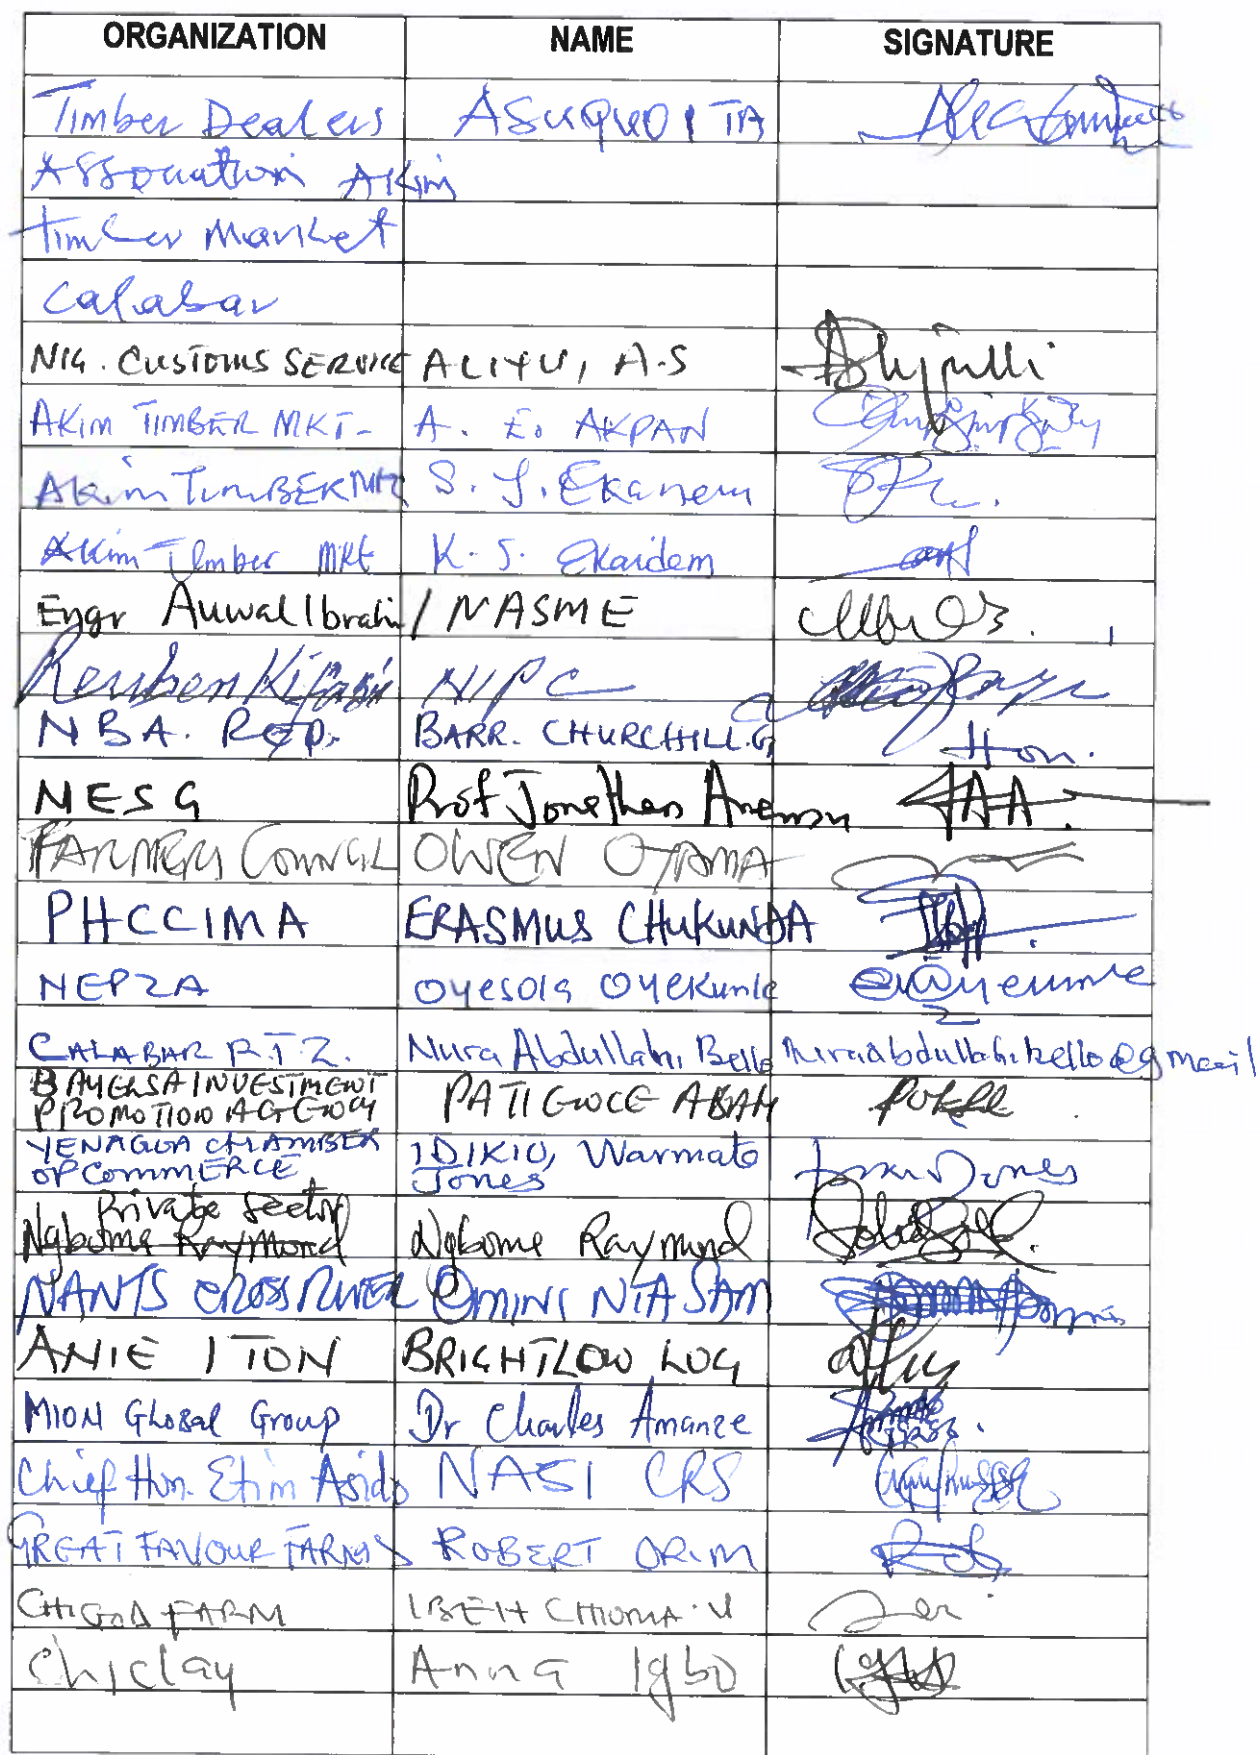 ORGANIZATION NAME SIGNATURE
Timber Dealers ASUQUO ITA
Association Akim
Timber Market
Calabar
NIG. CUSTOMS SERVICE ALIYU, A.S
AKIM TIMBER MKT- A. E. AKPAN
Akim TIMBER MK S. J. Ekanem
Akim Timber MKt K. S. Ekaidem
Engr Auwal Ibrahim / NASME
Reuben NIPC
NBA. Rep. BARR. CHURCHILL.G Hon.
NESG Prof Jonathan JAA.
FARMERS COUNCIL OWEN OJAMA
PHCCIMA ERASMUS CHUKUNDA
NEPZA OYESOLA OYEKUNLE
CALABAR F.T.Z. Nura Abdullahi Bello nuraabdullahibello@gmail
BAYELSA INVESTMENT
PROMOTION AGENCY PATIENCE ABAH
YENAGOA CHAMBER
OF COMMERCE IDIKIO, Warmate
Jones
Private Sector
Ngbome Raymond Ngbome Raymond
NANTS CROSS RIVER OMINI NTA SAM
ANIE ITON BRIGHTLOW LOG
MION Global Group Dr Charles Amanze
Chief Hon. Etim Asido NASI CRS
GREAT FAVOUR FARMS ROBERT ORIM
CHIGODA FARM IBEH CHIOMA. U
Chiclay Anna Igbo